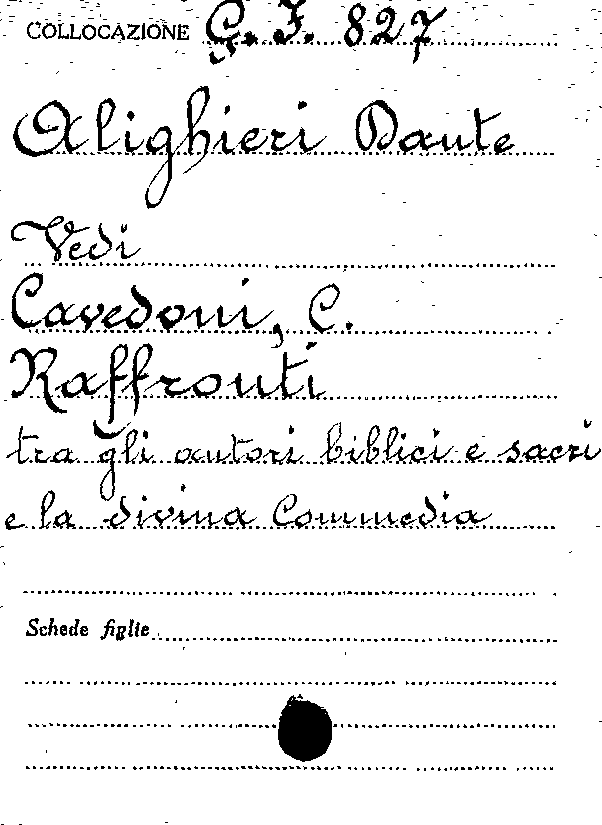 COLLOCAZIONE Ç. I. 827
Alighieri Dante
Vedi
Cavedoni, C.
Raffronti
tra gli autori biblici e sacri
e la divina Commedia
Schede figlie